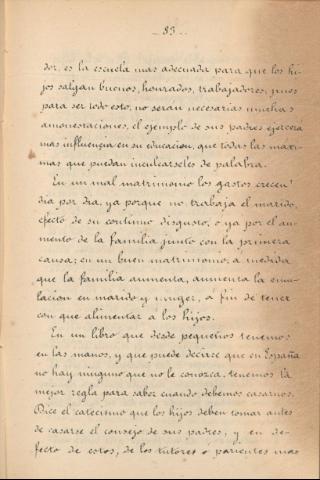 - 83 -
dor, es la escuela mas adecuada para que los hi-
jos salgan buenos, honrados, trabajadores, pues
para ser todo esto, no serán necesarias muchas
amonestaciones, el ejemplo de sus padres ejercerá
mas influencia en su educacion, que todas las maxi-
mas que puedan inculcarseles de palabra.
En un mal matrimonio los gastos crecen
dia por dia, ya porque no trabaja el marido,
efecto de su continuo disgusto, o ya por el au-
mento de la familia junto con la primera
causa; en un buen matrimonio, a medida
que la familia aumenta, aumenta la emu-
lacion en marido y muger, a fin de tener
con que alimentar a los hijos.
En un libro que desde pequeños tenemos
en las manos, y que puede decirse que en España
no hay ninguno que no le conozca, tenemos la
mejor regla para saber cuando debemos casarnos.
Dice el catecismo que los hijos deben tomar antes
de casarse el consejo de sus padres, y en de-
fecto de estos, de los tutores o parientes mas